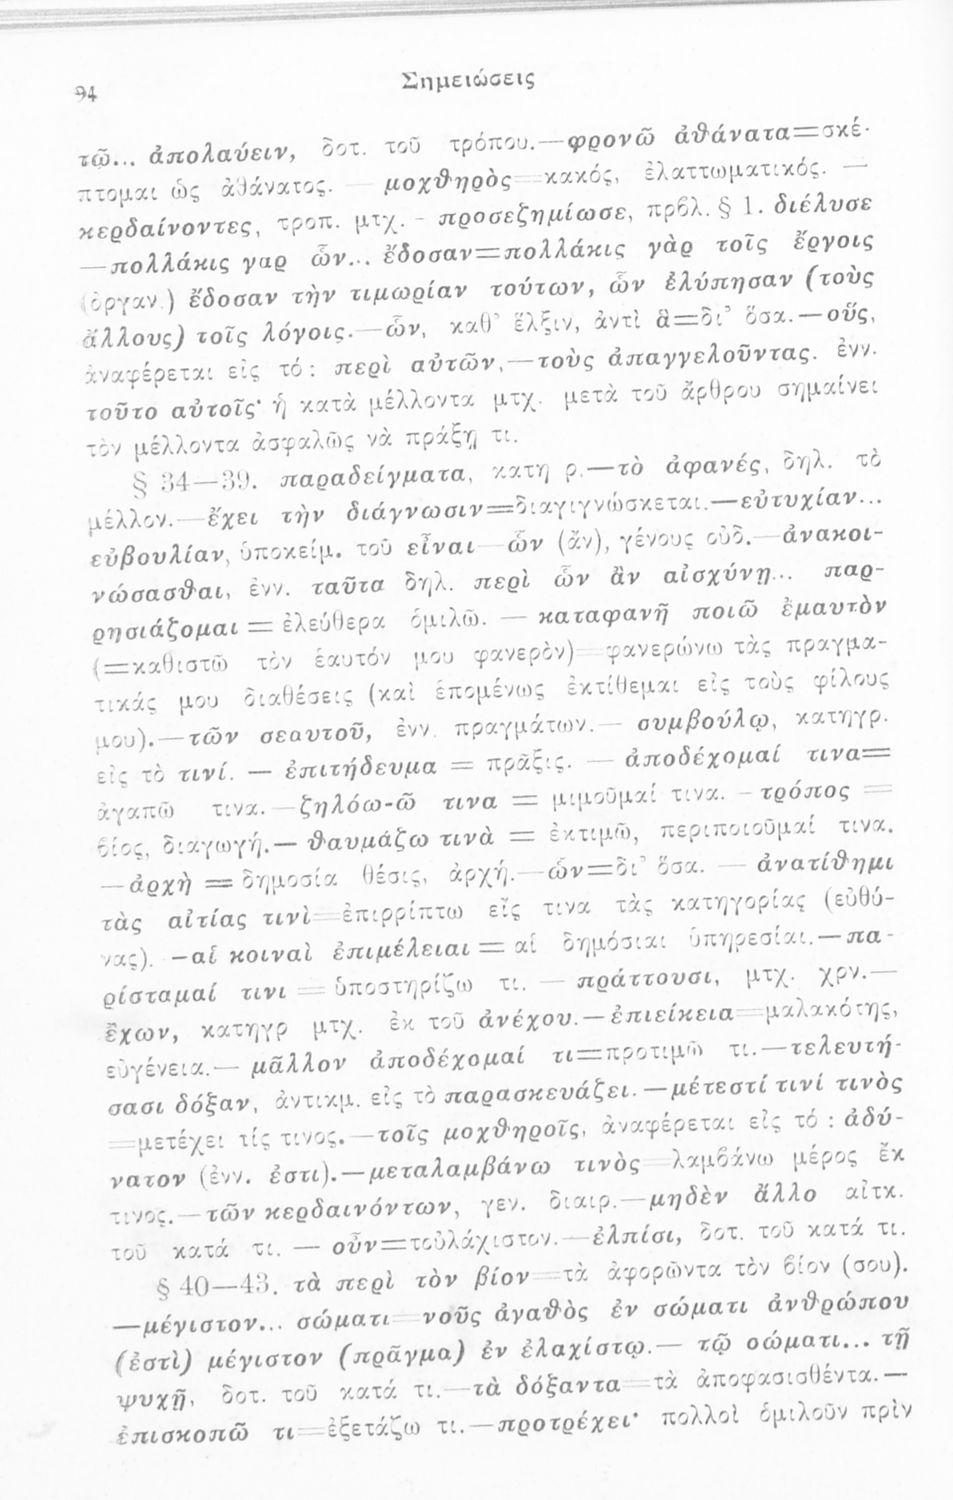 94
Σημειώσεις
τῷ... ἀπολαύειν, δοτ. τοῦ τρόπου.—φρονῶ ἀθάνατα=σκέ-
πτομαι ὡς ἀθάνατος. — μοχθηρὸς=κακός, ἐλαττωματικός. —
κερδαίνοντες, τροπ. μτχ. - προσεζημίωσε, πρβλ. § 1. διέλυσε
—πολλάκις γαρ ὧν... ἔδοσαν=πολλάκις γὰρ τοῖς ἔργοις
(ὀργαν.) ἔδοσαν τὴν τιμωρίαν τούτων, ὧν ἐλύπησαν (τοὺς
ἄλλους) τοῖς λόγοις.—ὧν, καθ' ἕλξιν, ἀντὶ ἃ=δι' ὅσα.—οὕς,
ἀναφέρεται εἰς τό: περὶ αὐτῶν,—τοὺς ἀπαγγελοῦντας. ἐνν.
τοῦτο αὐτοῖς· ἡ κατὰ μέλλοντα μτχ. μετὰ τοῦ ἄρθρου σημαίνει
τὸν μέλλοντα ἀσφαλῶς νὰ πράξῃ τι.
§ 34—39. παραδείγματα, κατηγρ.—τὸ ἀφανές, δηλ. τὸ
μέλλον.—ἔχει τὴν διάγνωσιν=διαγιγνώσκεται.—εὐτυχίαν...
εὐβουλίαν, ὑποκείμ. τοῦ εἶναι—ὧν (ἄν), γένους οὐδ.—ἀνακοι-
νώσασθαι, ἐνν. ταῦτα δηλ. περὶ ὧν ἂν αἰσχύνῃ... παρ-
ρησιάζομαι = ἐλεύθερα ὁμιλῶ. — καταφανῆ ποιῶ ἐμαυτὸν
(=καθιστῶ τὸν ἑαυτόν μου φανερὸν)=φανερώνω τὰς πραγμα-
τικάς μου διαθέσεις (καὶ ἑπομένως ἐκτίθεμαι εἰς τοὺς φίλους
μου).—τῶν σεαυτοῦ, ἐνν. πραγμάτων.— συμβούλῳ, κατηγρ.
εἰς τὸ τινί. — ἐπιτήδευμα = πρᾶξις. — ἀποδέχομαί τινα=
ἀγαπῶ τινα.—ζηλόω-ῶ τινα = μιμοῦμαί τινα. - τρόπος =
βίος, διαγωγή.— θαυμάζω τινὰ = ἐκτιμῶ, περιποιοῦμαί τινα.
—ἀρχὴ = δημοσία θέσις, ἀρχή.—ὧν=δι' ὅσα. — ἀνατίθημι
τὰς αἰτίας τινὶ=ἐπιρρίπτω εἴς τινα τὰς κατηγορίας (εὐθύ-
νας). —αἱ κοιναὶ ἐπιμέλειαι = αἱ δημόσιαι ὑπηρεσίαι.—πα-
ρίσταμαί τινι = ὑποστηρίζω τι. — πράττουσι, μτχ. χρν.—
ἔχων, κατηγρ μτχ. ἐκ τοῦ ἀνέχου.—ἐπιείκεια=μαλακότης,
εὐγένεια.— μᾶλλον ἀποδέχομαί τι=προτιμῶ τι.—τελευτή-
σασι δόξαν, ἀντικμ. εἰς τὸ παρασκευάζει.—μέτεστί τινί τινὸς
=μετέχει τίς τινος.—τοῖς μοχθηροῖς, ἀναφέρεται εἰς τό : ἀδύ-
νατον (ἐνν. ἐστι).—μεταλαμβάνω τινὸς=λαμβάνω μέρος ἔκ
τινος.—τῶν κερδαινόντων, γεν. διαιρ.—μηδὲν ἄλλο αἰτκ.
τοῦ κατά τι. — οὖν=τοὐλάχιστον.—ἐλπίσι, δοτ. τοῦ κατά τι.
§ 40—43. τὰ περὶ τὸν βίον=τὰ ἀφορῶντα τὸν βίον (σου).
—μέγιστον... σώματι=νοῦς ἀγαθὸς ἐν σώματι ἀνθρώπου
(ἐστὶ) μέγιστον (πρᾶγμα) ἐν ἐλαχίστῳ.— τῷ σώματι... τῇ
ψυχῇ, δοτ. τοῦ κατά τι.—τὰ δόξαντα=τὰ ἀποφασισθέντα.—
ἐπισκοπῶ τι=ἐξετάζω τι.—προτρέχει· πολλοὶ ὁμιλοῦν πρὶν